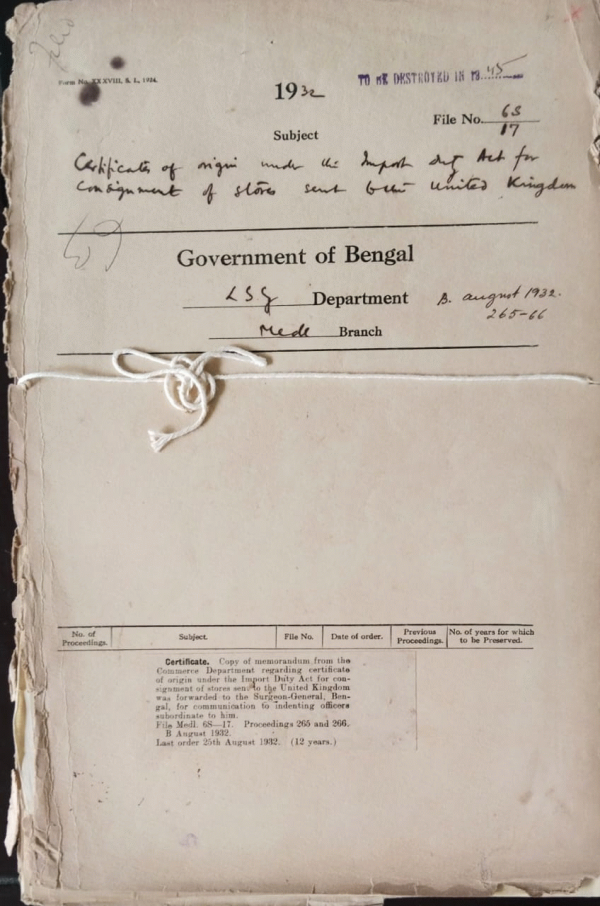 Form No. XXXVIII, S. L., 1924.
1932
TO BE DESTROYED IN 1945
File No. 6S
17
Subject
Certificates of origin under the Import duty Act for
Consignment of stores sent to the United Kingdom
Government of Bengal
LSG Department
B. august 1932.
265-66
Medl Branch
No. of Proceedings.
Subject.
File No.
Date of order.
Previous Proceedings.
No. of years for which to be Preserved.
Certificate. Copy of memorandum from the
Commerce Department regarding certificate
of origin under the Import Duty Act for con-
signment of stores sent to the United Kingdom
was forwarded to the Surgeon-General, Ben-
gal, for communication to indenting officers
subordinate to him.
File Medl. 6S—17. Proceedings 265 and 266.
B August 1932.
Last order 25th August 1932. (12 years.)